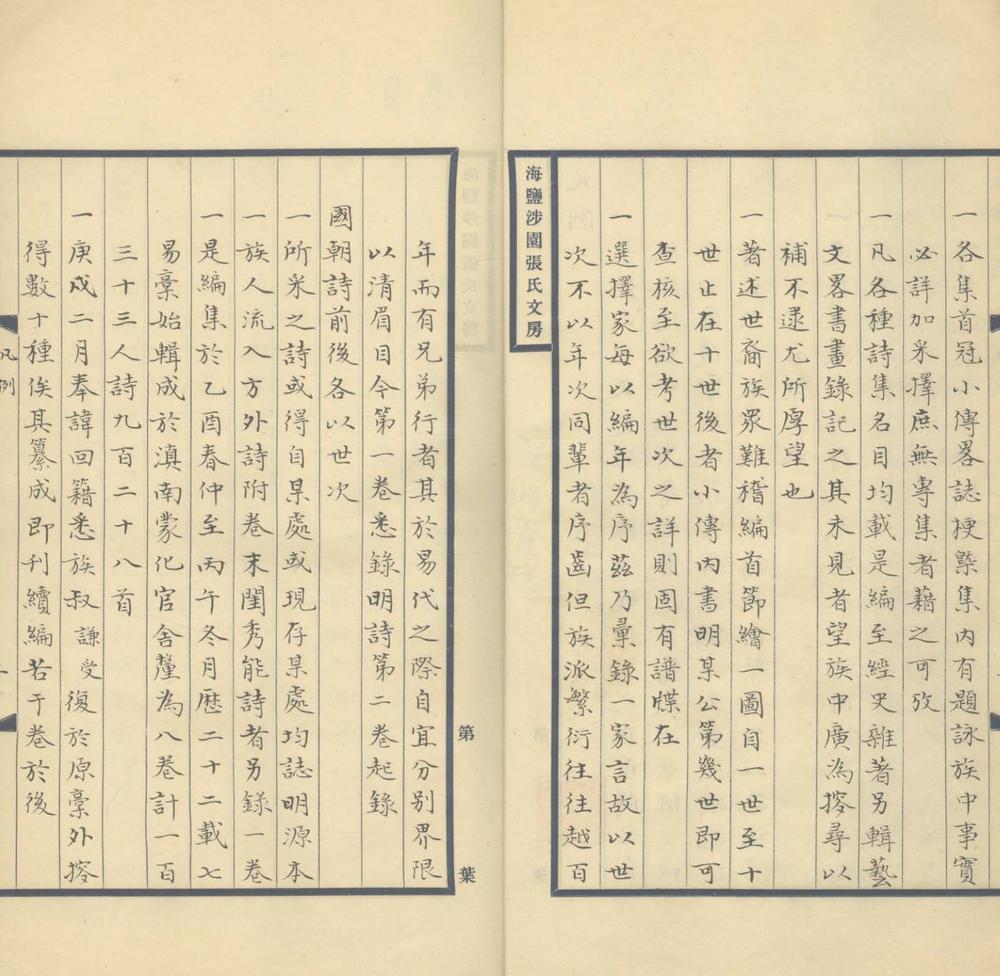 一各集首冠小傳畧誌梗槩集內有題詠族中事實
必詳加采擇庶無專集者藉之可攷
一凡各種詩集名目均載是編至經史雜著另輯藝
文畧書畫錄記之其未見者望族中廣為搜尋以
補不逮尤所厚望也
一著述世裔族眾難稽編首節繪一圖自一世至十
世止在十世後者小傳內書明某公第幾世即可
查核至欲考世次之詳則固有譜牒在
一選擇家每以編年為序茲乃彙錄一家言故以世
次不以年次同輩者序齒但族派繁衍往往越百
海鹽涉園張氏文房
年而有兄弟行者其於易代之際自宜分別界限
以清眉目今第一卷悉錄明詩第二卷起錄
國朝詩前後各以世次
一所采之詩或得自某處或現存某處均誌明源本
一族人流入方外詩附卷末閨秀能詩者另錄一卷
一是編集於乙酉春仲至丙午冬月歷二十二載七
易稾始輯成於滇南蒙化官舍釐為八卷計一百
三十三人詩九百二十八首
一庚戍二月奉諱回籍悉族叔謙受復於原稾外搜
得數十種俟其纂成即刊續編若干卷於後
第 葉
凡例